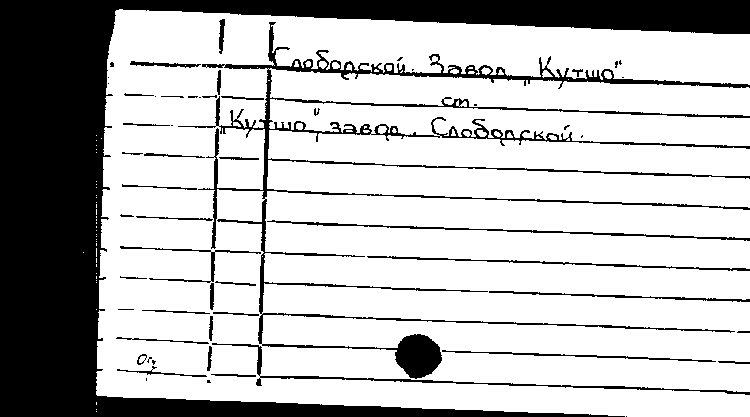 Слободской. Завод „Кутшо".
см.
„Кутшо", завод. Слободской.